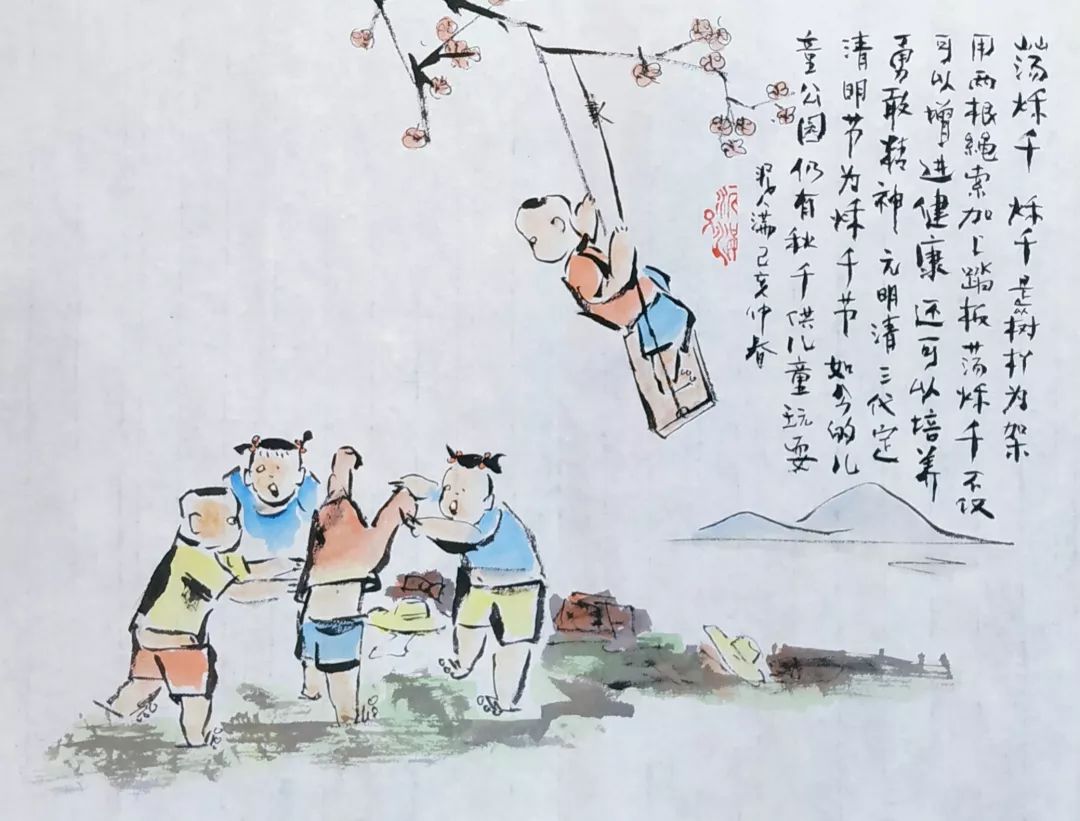 荡秌千 秌千是以树杈为架
用两根繩索加上踏板荡秌千不仅
可以增进健康还可以培养
勇敢精神 元明清三代定
清明节为秌千节 如今的儿
童公园仍有秋千供儿童玩耍
满己亥仲春